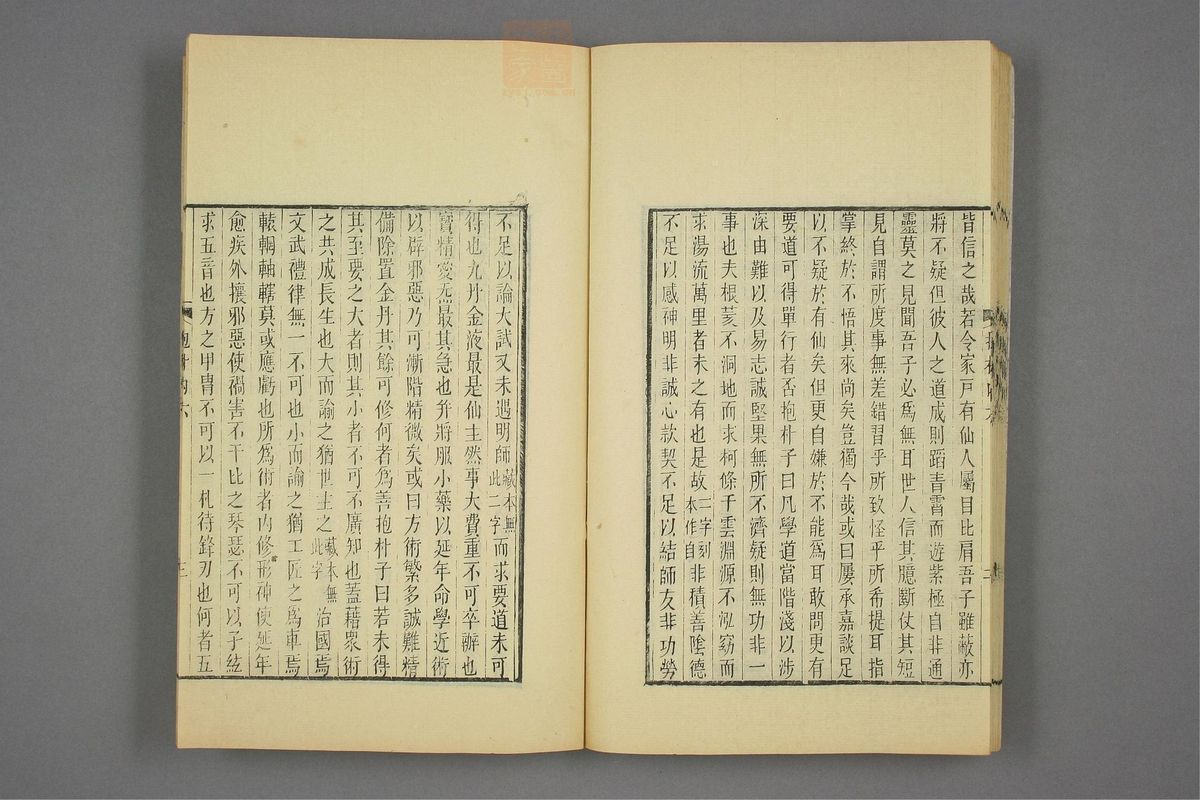 皆信之哉若令家戸有仙人屬目比肩吾子雖蔽亦
將不疑但彼人之道成則蹈青霄而遊紫極自非通
靈莫之見聞吾子必爲無耳世人信其臆斷仗其短
見自謂所度事無差錯習乎所致怪乎所希提耳指
掌終於不悟其來尚矣豈獨今哉或曰屢承嘉談足
以不疑於有仙矣但更自嫌於不能爲耳敢問更有
要道可得單行者否抱朴子曰凡學道當階淺以涉
深由難以及易志誠堅果無所不濟疑則無功非一
事也夫根荄不洞地而求柯條干雲淵源不泓窈而
求湯流萬里者未之有也是故二字刻本作自非積善陰德
不足以感神明非誠心款契不足以結師友非功勞
不足以論大試又未遇明師藏本無此二字而求要道未可
得也九丹金液最是仙主然事大費重不可卒辦也
寶精愛炁最其急也并將服小藥以延年命學近術
以辟邪惡乃可漸階精微矣或曰方術繁多誠難精
備除置金丹其餘可修何者爲善抱朴子曰若未得
其至要之大者則其小者不可不廣知也蓋藉衆術
之共成長生也大而諭之猶世主之藏本無此字治國焉
文武禮律無一不可也小而諭之猶工匠之爲車焉
轅輞軸轄莫或應虧也所爲術者內修形神使延年
愈疾外攘邪惡使禍害不干比之琴瑟不可以孑絃
求五音也方之甲冑不可以一札待鋒刃也何者五
抱朴內六
三